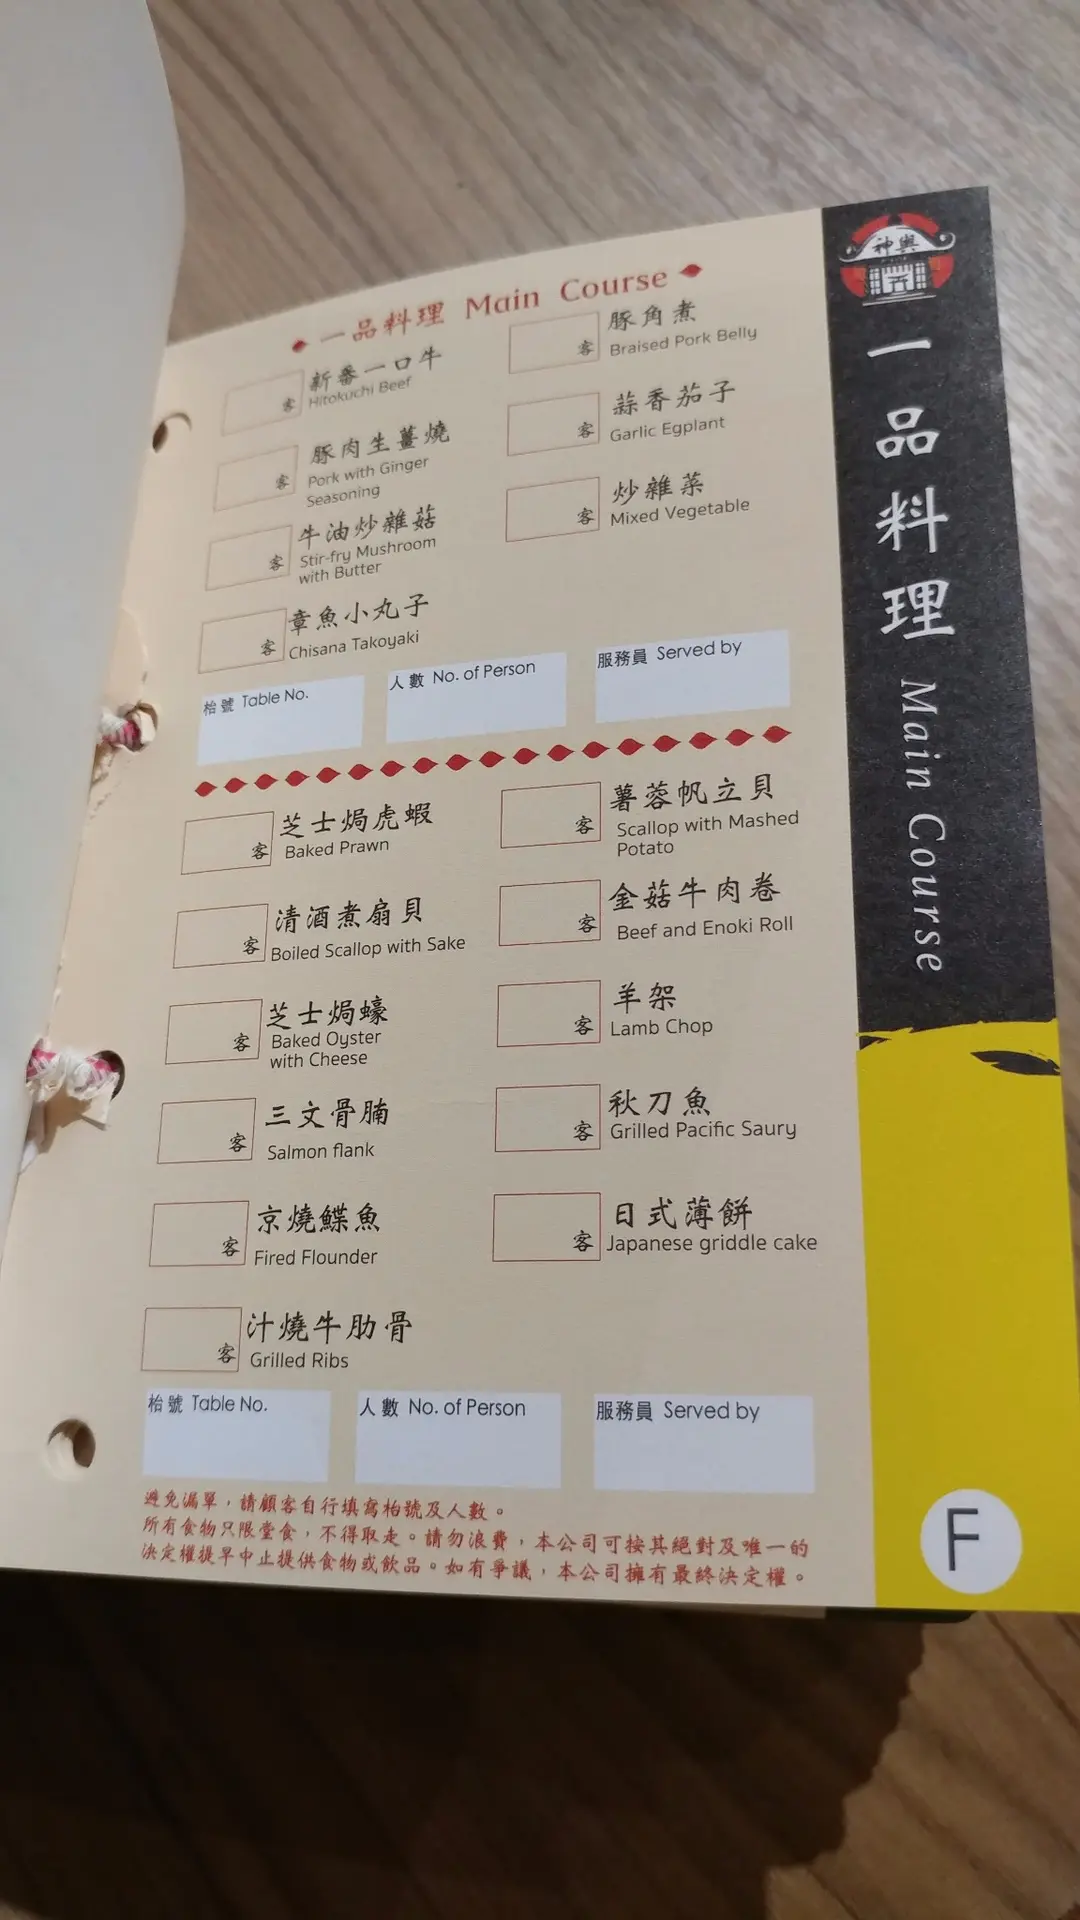 一品料理 Main Course
客
新番一口牛
Hitokuchi Beef
客
豚肉生薑燒
Pork with Ginger
Seasoning
客
牛油炒雜菇
Stir-fry Mushroom
with Butter
客
章魚小丸子
Chisana Takoyaki
客
豚角煮
Braised Pork Belly
客
蒜香茄子
Garlic Egplant
客
炒雜菜
Mixed Vegetable
枱號 Table No.
人數 No. of Person
服務員 Served by
客
芝士焗虎蝦
Baked Prawn
客
清酒煮扇貝
Boiled Scallop with Sake
客
芝士焗蠔
Baked Oyster
with Cheese
客
三文骨腩
Salmon flank
客
京燒鰈魚
Fired Flounder
客
汁燒牛肋骨
Grilled Ribs
客
薯蓉帆立貝
Scallop with Mashed
Potato
客
金菇牛肉卷
Beef and Enoki Roll
客
羊架
Lamb Chop
客
秋刀魚
Grilled Pacific Saury
客
日式薄餅
Japanese griddle cake
枱號 Table No.
人數 No. of Person
服務員 Served by
避免漏單，請顧客自行填寫枱號及人數。
所有食物只限堂食，不得取走。請勿浪費，本公司可按其絕對及唯一的
決定權提早中止提供食物或飲品。如有爭議，本公司擁有最終決定權。
神輿
一品料理 Main Course
F